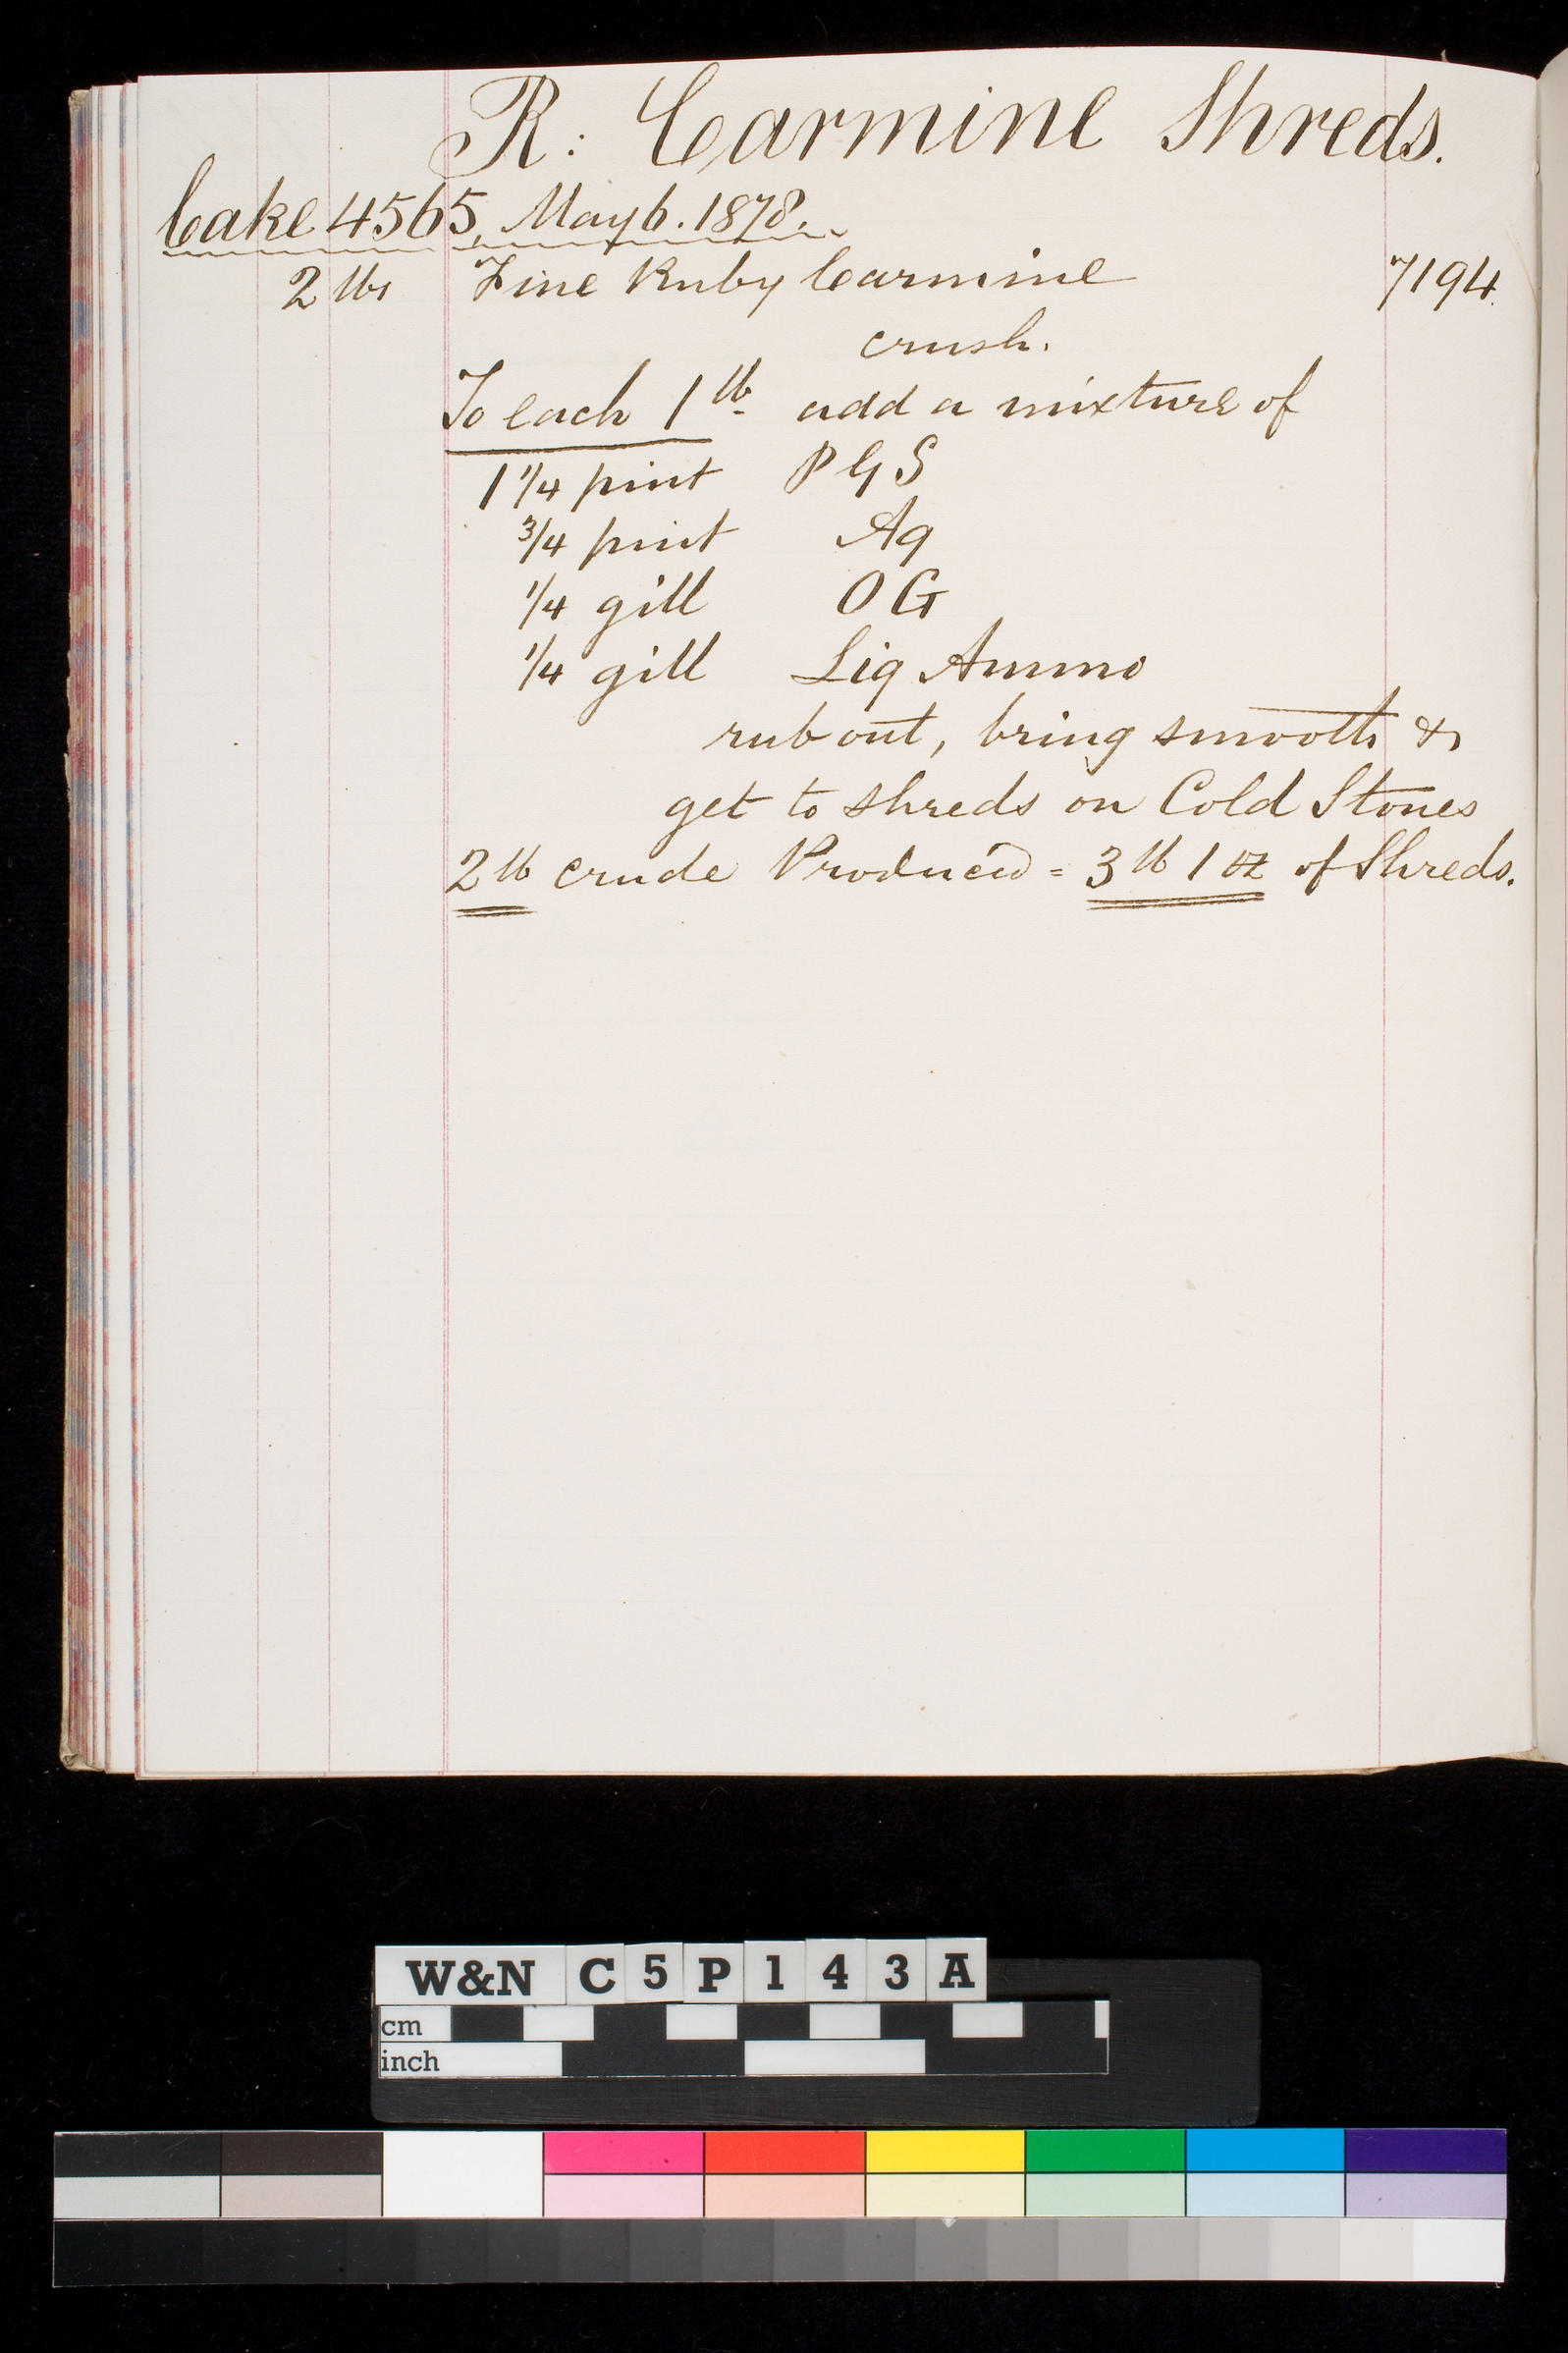 R: Carmine Shreds.
Cake 4565, May 6. 1878.
2 lbs Fine Ruby Carmine 7194
crush.
To each 1 lb add a mixture of
1 1/4 pint P G S
3/4 pint Aq
1/4 gill O G
1/4 gill Liq Ammo
rub out, bring smooth &
get to shreds on Cold Stones
2 lb crude Produced = 3 lb 1 oz of Shreds.
W&N C5P143A
cm
inch